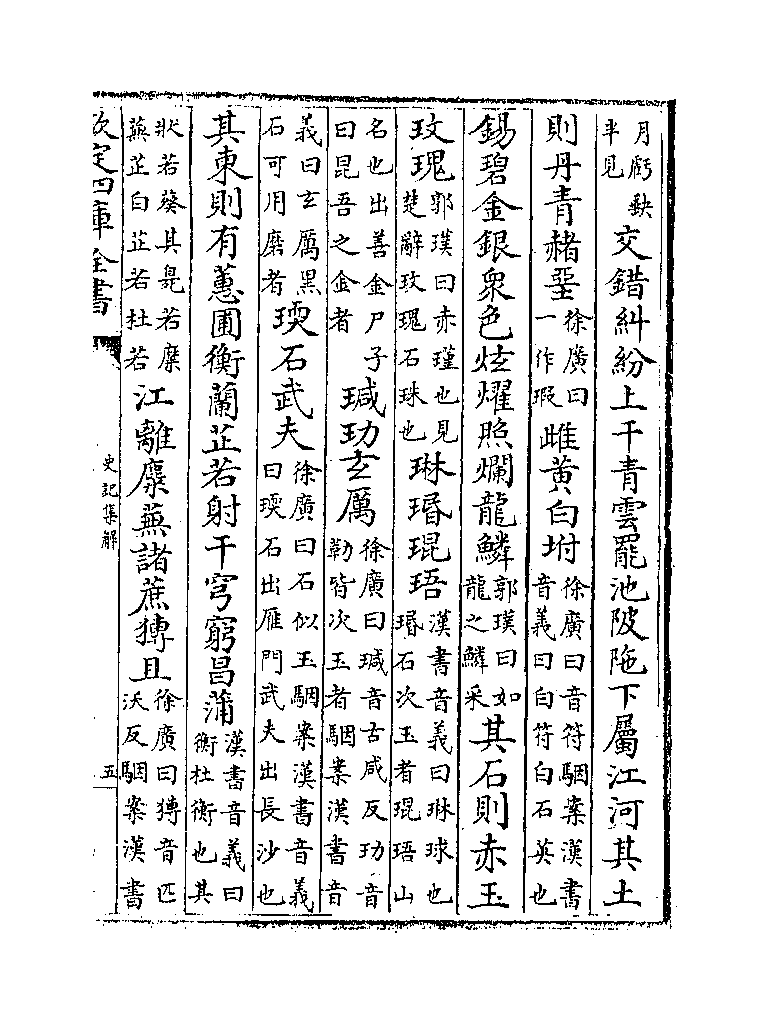 月虧缺半見交錯糾紛上干青雲罷池陂陁下屬江河其土
則丹青赭堊徐廣曰一作瑕雌黃白坿徐廣曰音符駰案漢書音義曰白符白石英也
錫碧金銀衆色炫燿照爛龍鱗郭璞曰如龍之鱗采其石則赤玉
玫瑰郭璞曰赤瑾也見楚辭玫瑰石珠也琳瑉琨珸漢書音義曰琳球也瑉石次玉者琨珸山
名也出善金尸子曰昆吾之金者瑊玏玄厲徐廣曰瑊音古咸反玏音勒皆次玉者駰案漢書音
義曰玄厲黑石可用磨者瑌石武夫徐廣曰石似玉駰案漢書音義曰瑌石出雁門武夫出長沙也
其東則有蕙圃衡蘭芷若射干穹窮昌蒲漢書音義曰衡杜衡也其
狀若葵其臭若麋蕪芷白芷若杜若江離麋蕪諸蔗猼且徐廣曰猼音匹沃反駰案漢書
欽定四庫全書
史記集解
五